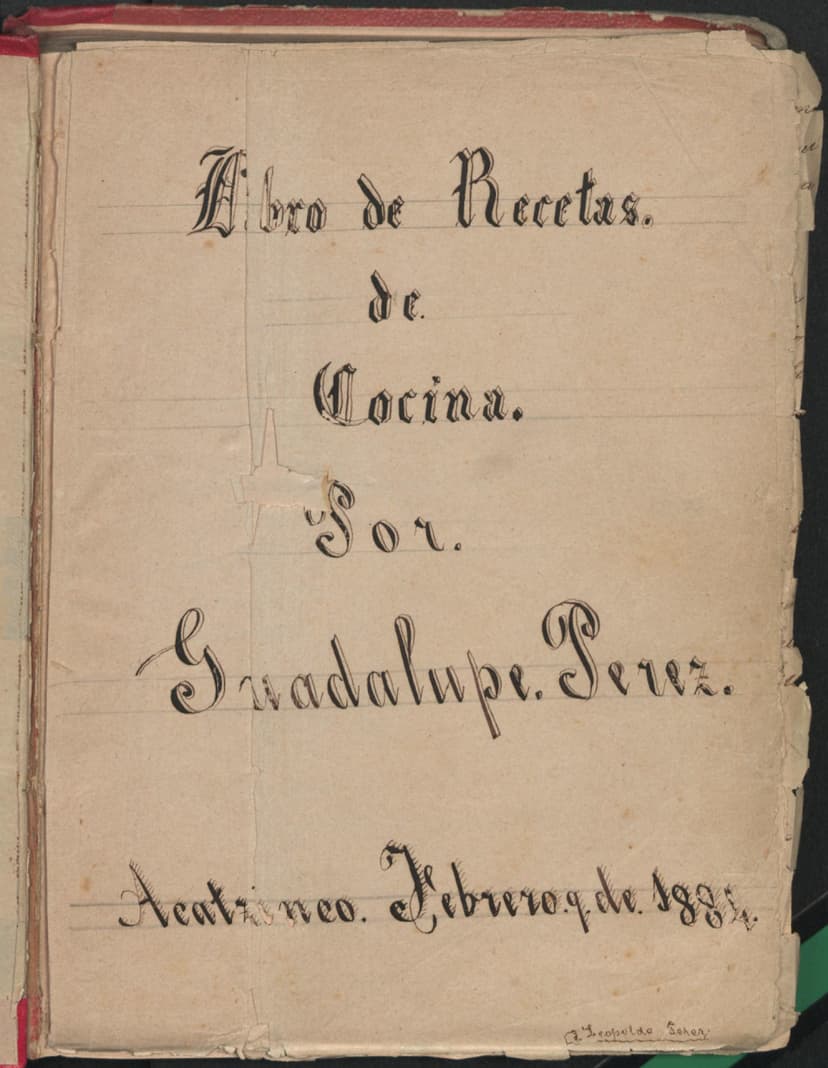 Libro de Recetas.
de
Cocina.
Por.
Guadalupe. Perez.
Acatzinco. Febrero. 9. de. 188
Leopoldo Perez